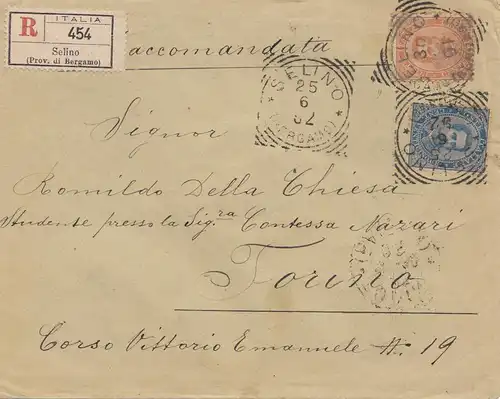 R
ITALIA
454
Selino
(Prov. di Bergamo)
Raccomandata
SELINO
25
6
92
(BERGAMO)
SELINO
(BERGAMO)
Signor
Romildo Della Chiesa
Studente presso la Sig.ra Contessa Nazari
Torino
Corso Vittorio Emanuele N. 19